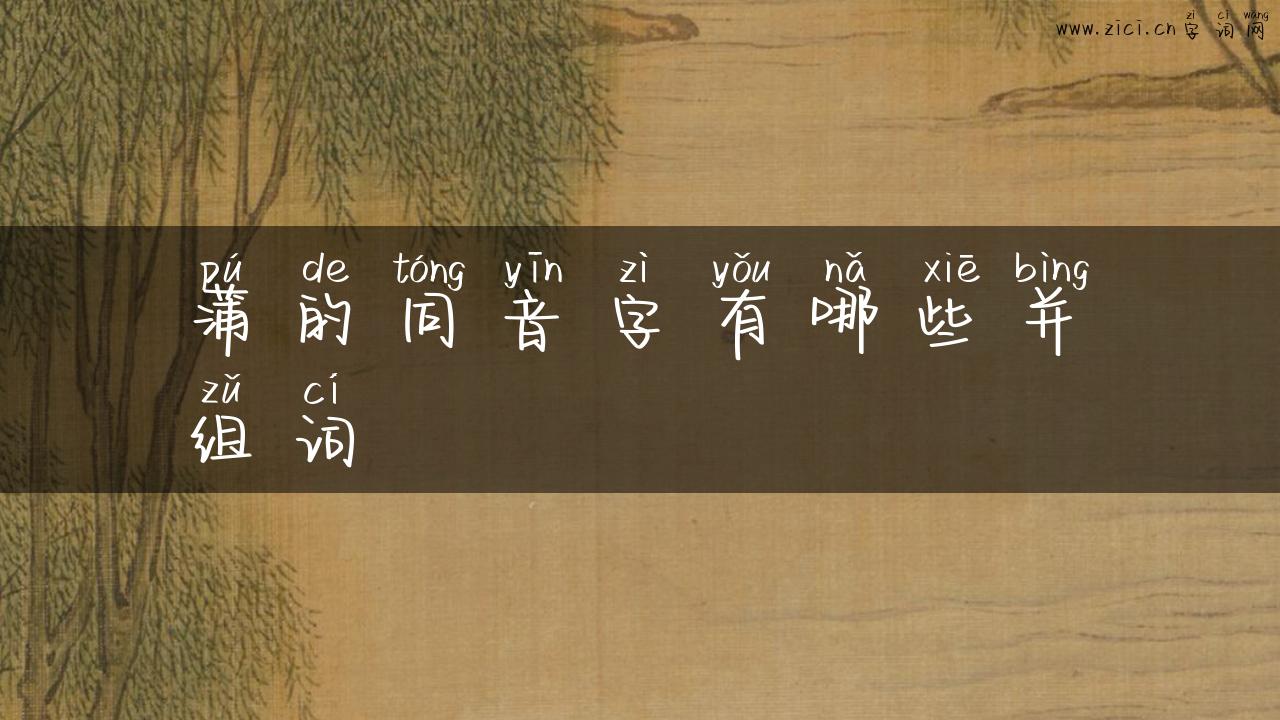 zì cí wǎng
www.zici.cn 字词网
pú de tóng yīn zì yǒu nǎ xiē bìng
蒲的同音字有哪些并
zǔ cí
组词